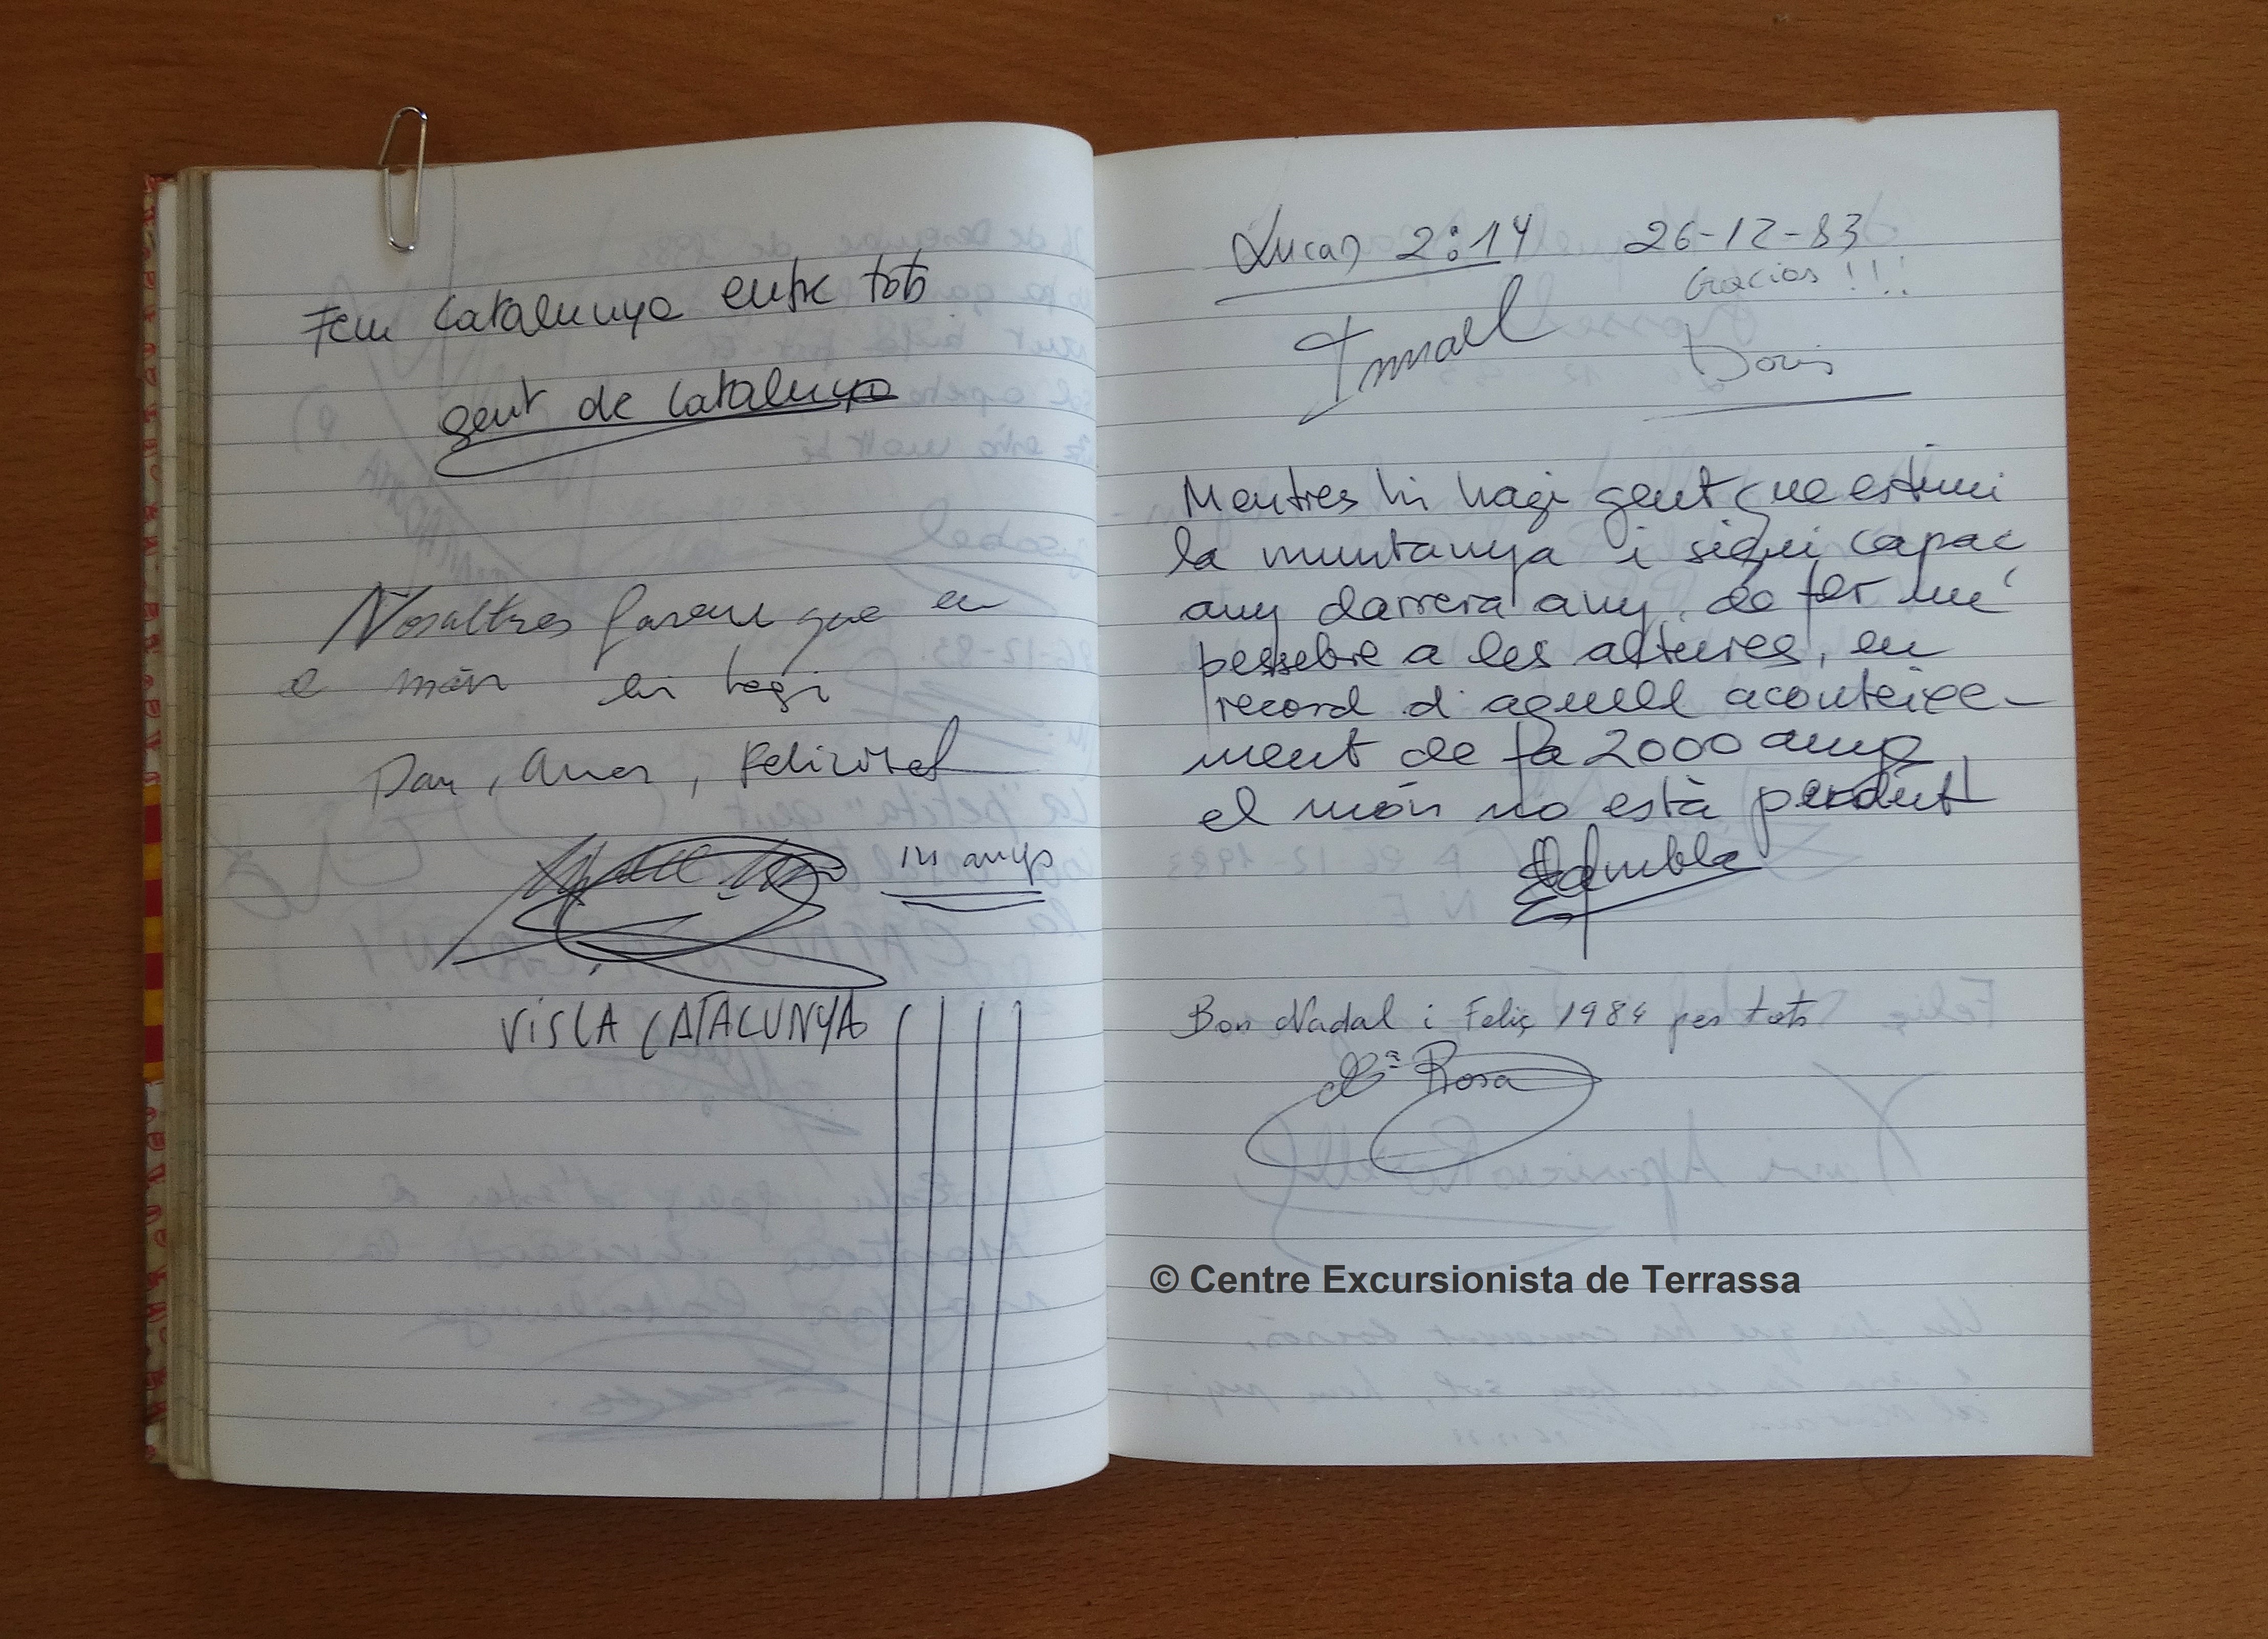 Fem Catalunya entre tots
gent de Catalunya
Nosaltres farem que en
el món hi hagi
Pau, Amor, Felicitat
14 anys
VISCA CATALUNYA
Lucas 2:14 26-12-83
Gracias !!!
Ismael
Doris
Mentres hi hagi gent que estimi
la muntanya i sigui capaç
any darrera any, de fer un
pessebre a les altures, en
record d'aquell aconteixe-
ment de fa 2000 anys
el món no està perdut!
Bon Nadal i Feliç 1984 per tots
Mª Rosa
© Centre Excursionista de Terrassa